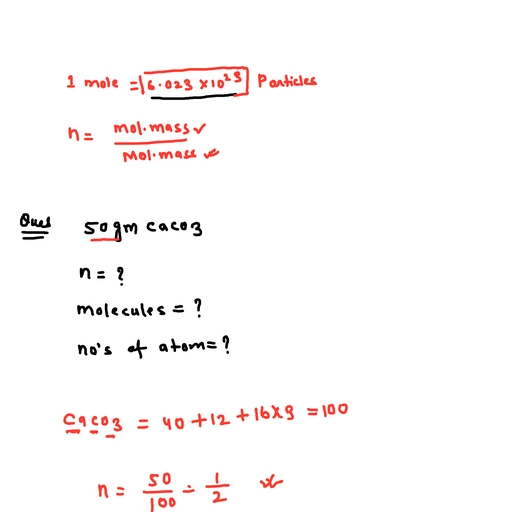 1 mole = 6.023 × 10²³ Particles
n = mol.mass / Mol.mass
Ques 50 gm caco3
n = ?
molecules = ?
no's of atom = ?
Caco3 = 40 + 12 + 16 × 3 = 100
n = 50/100 = 1/2